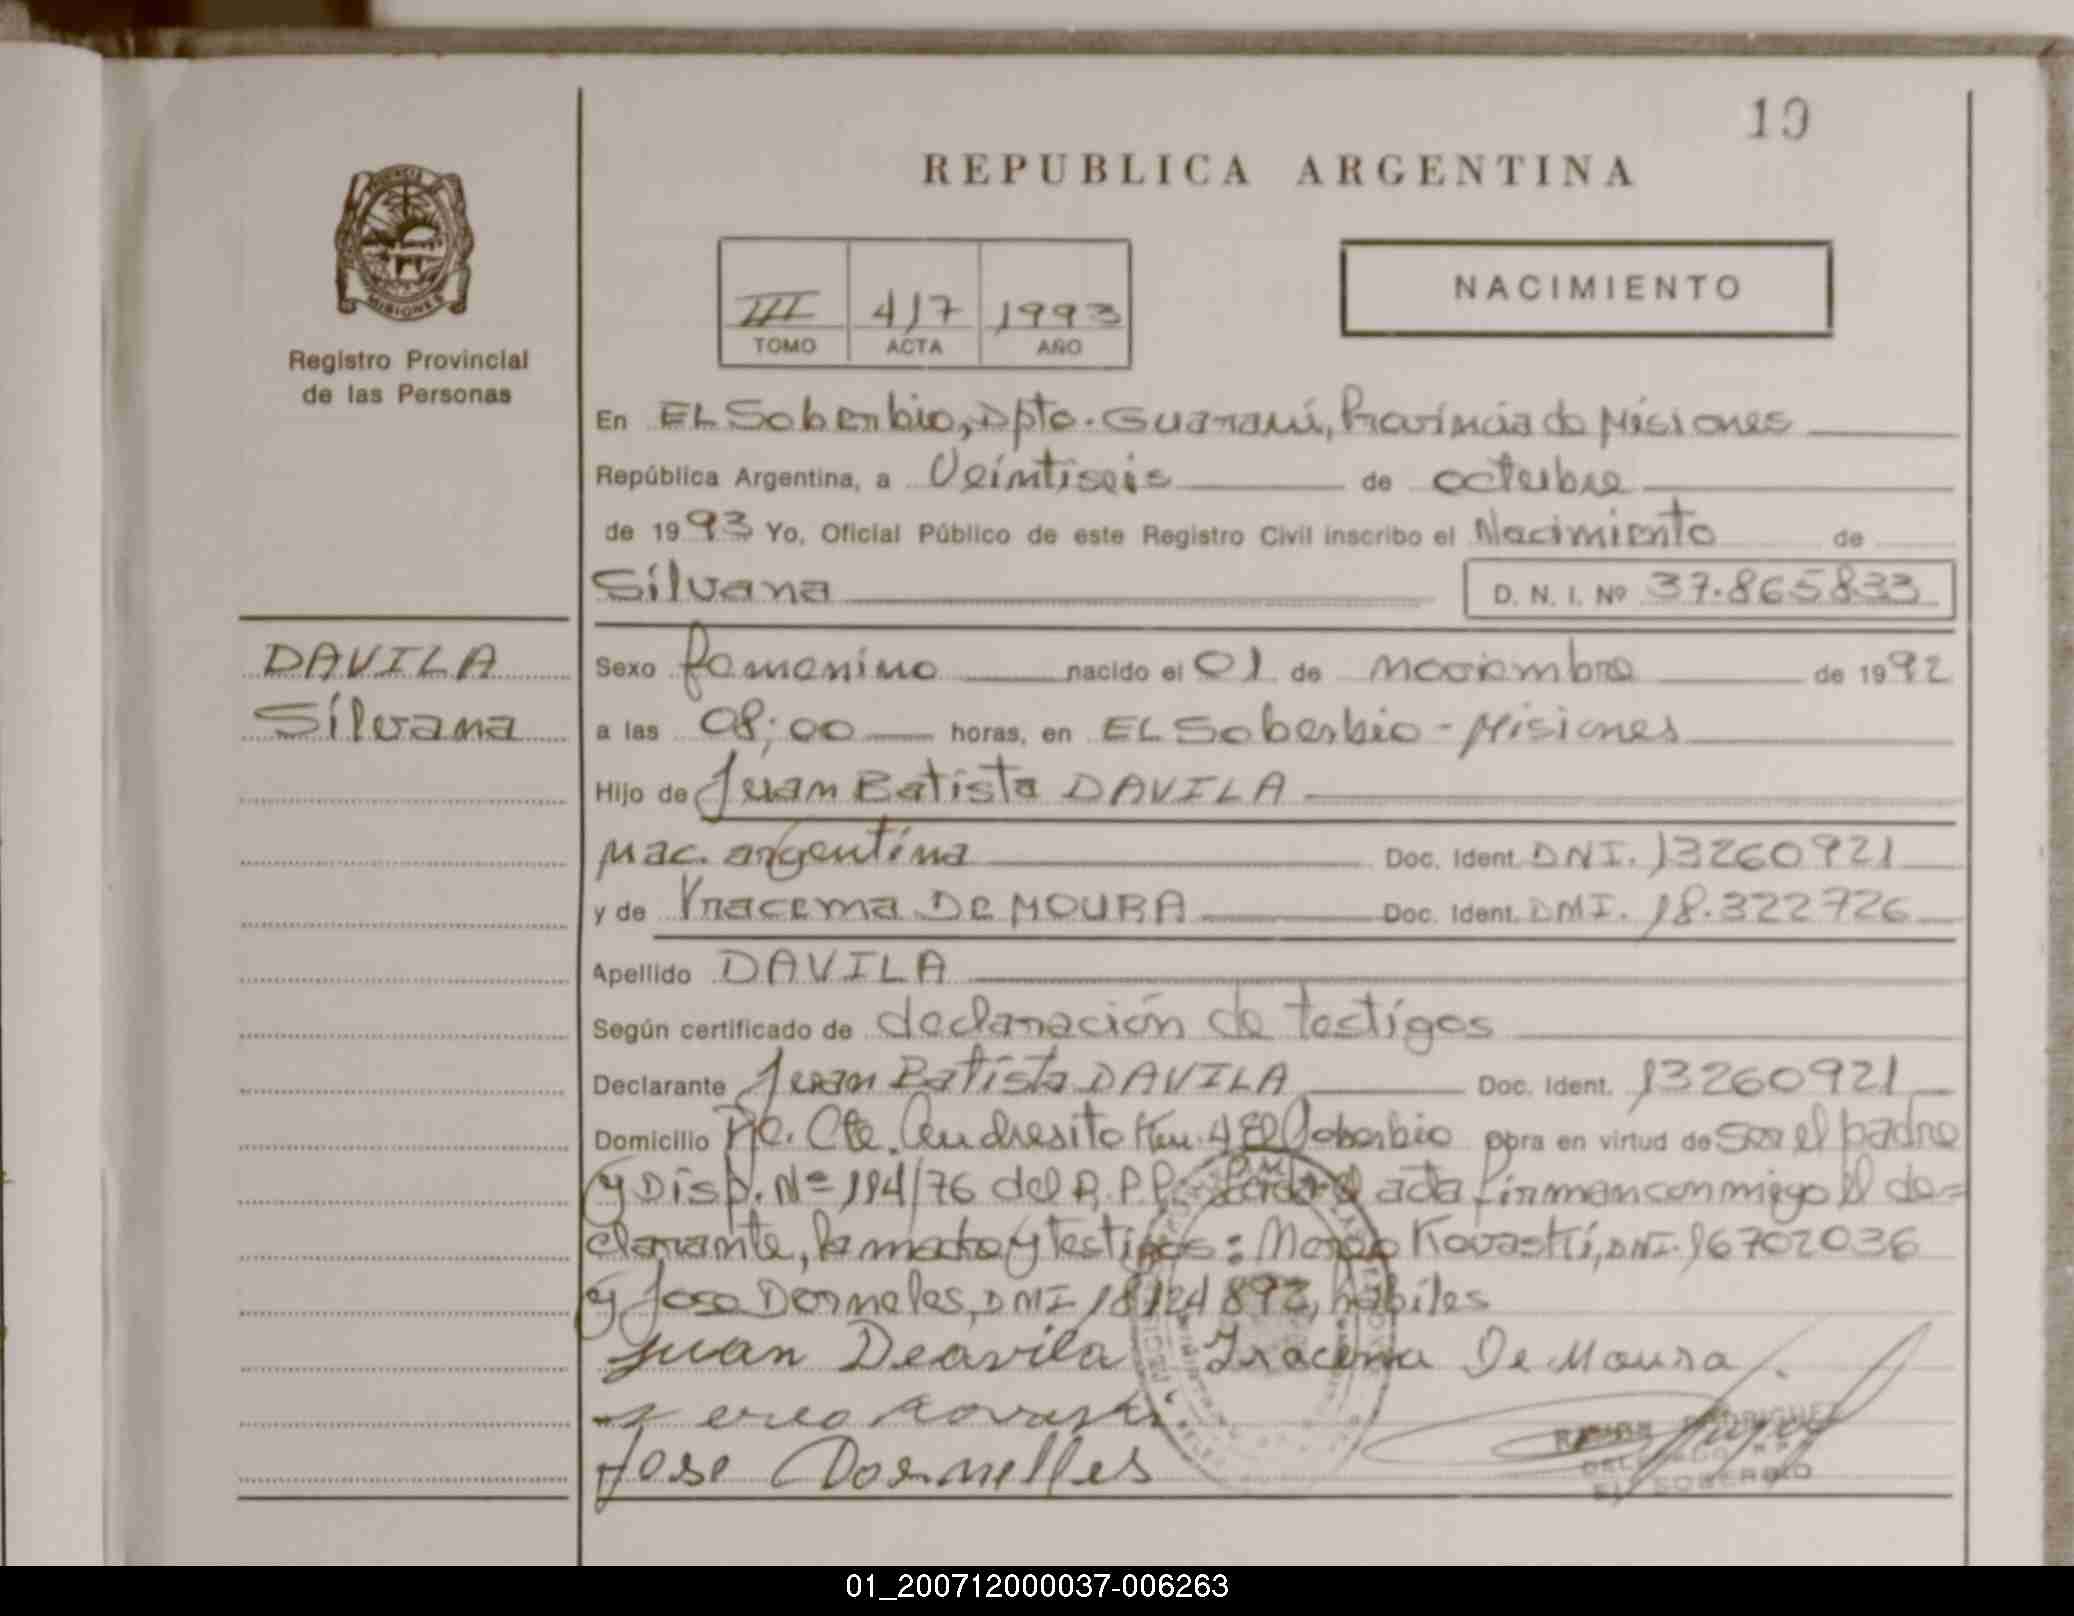 19
REPUBLICA ARGENTINA
PROVINCIA DE MISIONES
Registro Provincial
de las Personas
III 417 1993
TOMO ACTA AÑO
NACIMIENTO
En EL Soberbio, Dpto. Guaraní, Provincia de Misiones
República Argentina, a Veintiseis de octubre
de 1993 Yo, Oficial Público de este Registro Civil inscribo el Nacimiento de
Silvana D. N. I. Nº 37.865833
DAVILA
Silvana
Sexo femenino nacido el 01 de noviembre de 1992
a las 08;00 horas, en EL Soberbio - Misiones
Hijo de Juan Batista DAVILA
nac. argentina Doc. Ident. DNI. 13260921
y de Yracema DE MOURA Doc. Ident. DNI. 18.322726
Apellido DAVILA
Según certificado de declaración de testigos
Declarante Juan Batista DAVILA Doc. Ident. 13260921
Domicilio Pje. Cte. Andresito Km. 4 El Soberbio obra en virtud de ser el padre
y Disp. Nº 194/76 del R.P.P. Leida el acta firman conmigo el de=
clarante, la madre y testigos: Kovaski, DNI. 16702036
y Jose Dornelles, DNI 18124892, hábiles
Juan Deavila Iracema De Moura.
Kovaski
Jose Dornelles
RODRIGUEZ
EL SOBERBIO
01_200712000037-006263